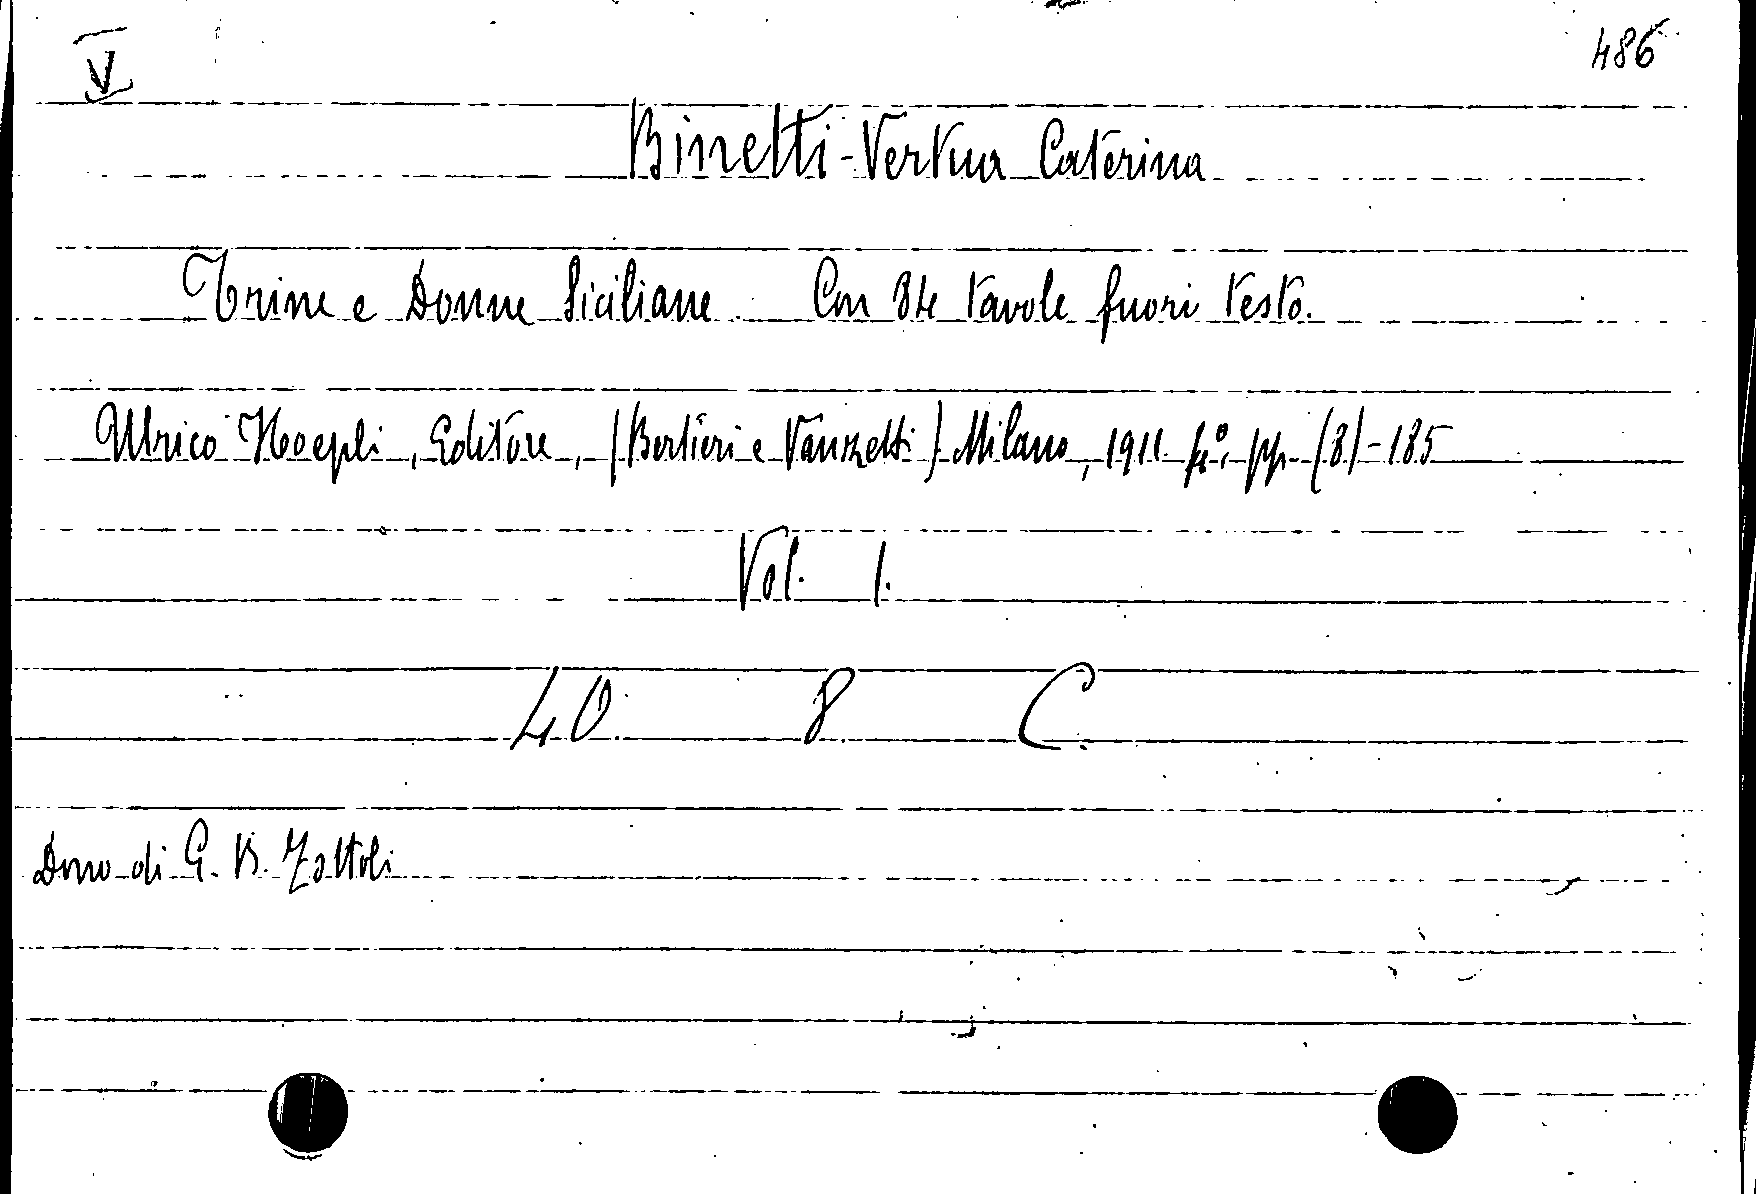 V 486
Binetti-Vertua Caterina
Trine e Donne Siciliane. Con 84 tavole fuori testo.
Ulrico Hoepli, Editore, (Bertieri e Vanzetti) Milano, 1911. 4°, pp. (8)-185
Vol. 1.
40. 8. C.
Dono di G. B. Zottoli